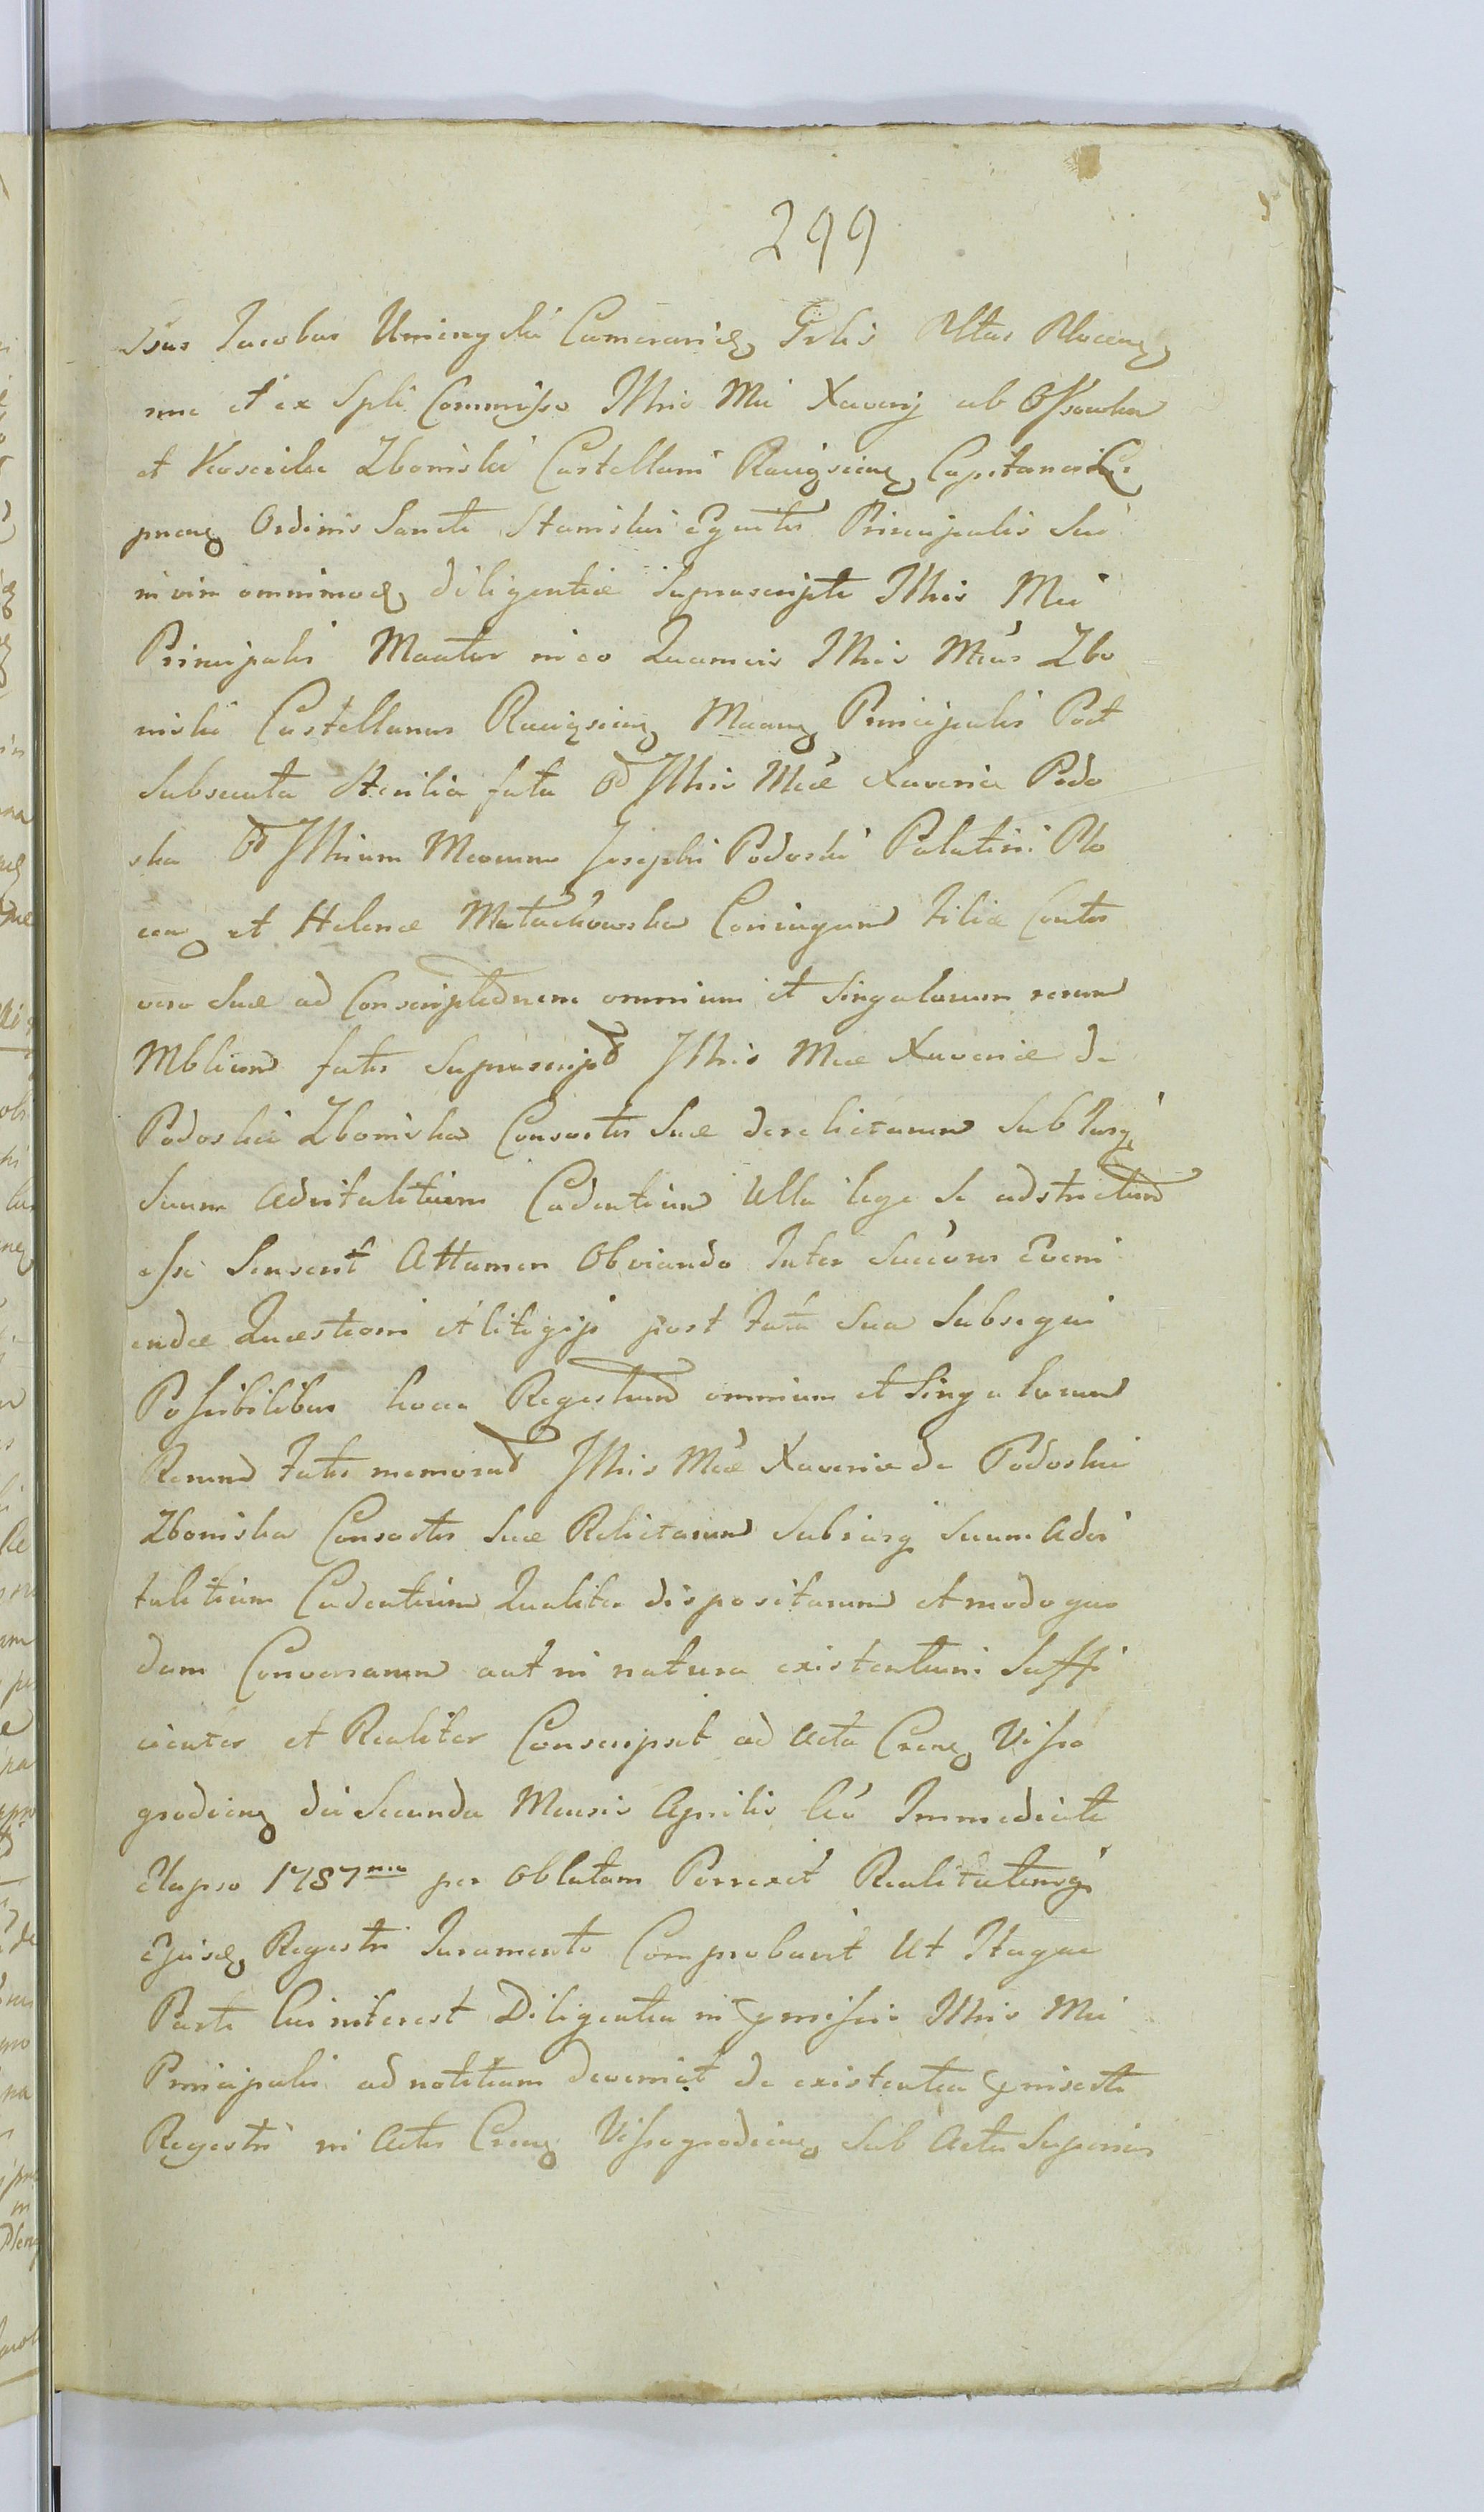 299
Jacobus Umienyski Camerari Grlis Pltus Plocen
nne et ex Spli Commisso Illris Mci Xaverij ab Ossowka
et Koscielec Zboinski Castellani Raciąscien Capitanei
pnens Ordinis Sancti Stanislai Equitis Principalis Sui
in vim omnimod diligentiæ Suprascripti Illris Mci
Principalis Mantur in eo Quamvis Illris Mcus Zbo
inski Castellanus Raciąscien Manens Principalis Post
Subsecuta Sterilia fata Illris Mcæ Xaveriæ Podo
ska Illrium Mcorum Josephi Podoski Palatini Plo
cen et Helenæ Małachowska Coniugum Filiæ Contor
vero Suæ ad Conscriptionem omnium et Singularum rerum
Mblium fatis Suprascript Illris Mcæ Xaveriæ de
Podoskie Zboinska Consortis Suæ derelictarum Sub Iusq
Suum Advitalitium Cadentium Ulla lege Se adstrictum
esse Senserit Attamen Obviando Inter Succōres Eveni
endæ Quæstioni et litigijs post fata Sua Subsequi
Possibilibus hocce Regestrum omnium et Singularum
Rerum fatis memorat Illris Mcæ Xaveriæ de Podoskie
Zboinska Consortis Suæ Relictarum Sub iusq Suum Advi
talitium Cadentium Qualiter dispositarum et modo quo
dam Conversarum aut in natura existentium Suffi
cienter et Realiter Conscripsit ad Acta Cren Visso
grodien die Secunda Mensis Aprilis Aō Immediate
Elapso 1787mo per Oblatam Porrexit Realitatemq
Ejusd Regestri Juramento Comprobavit Ut Itaque
Parti Cui interest Diligentia in pmissis Illris Mci
Principalis ad notitiam deveniat de existentia pinserti
Regestri in Actis Cren Vissogrodien Sub Actu Superius